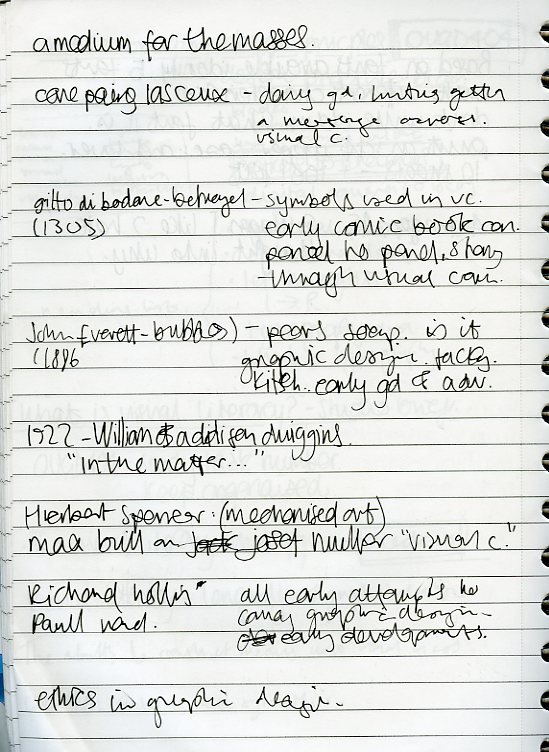 a medium for the masses.
cave paing lasceux - doing gd, hunting getting
a message across.
visual c.
gitto di bodone - betrayel - symbols used in vc.
(1305)
early comic book con.
panel to panel, story
through visual com.
John Everett - bubbles) - pears soap. is it
(1886
graphic design. tacky.
kitch. early gd & adv.
1922 - William addison dwiggins.
"in the matter..."
Herbert Spencer: (mechanised art)
max bill an josef muller "visual c."
Richard hollis
all early attempts to
Paull
convey graphic design
early developments.
ethics in graphic design.